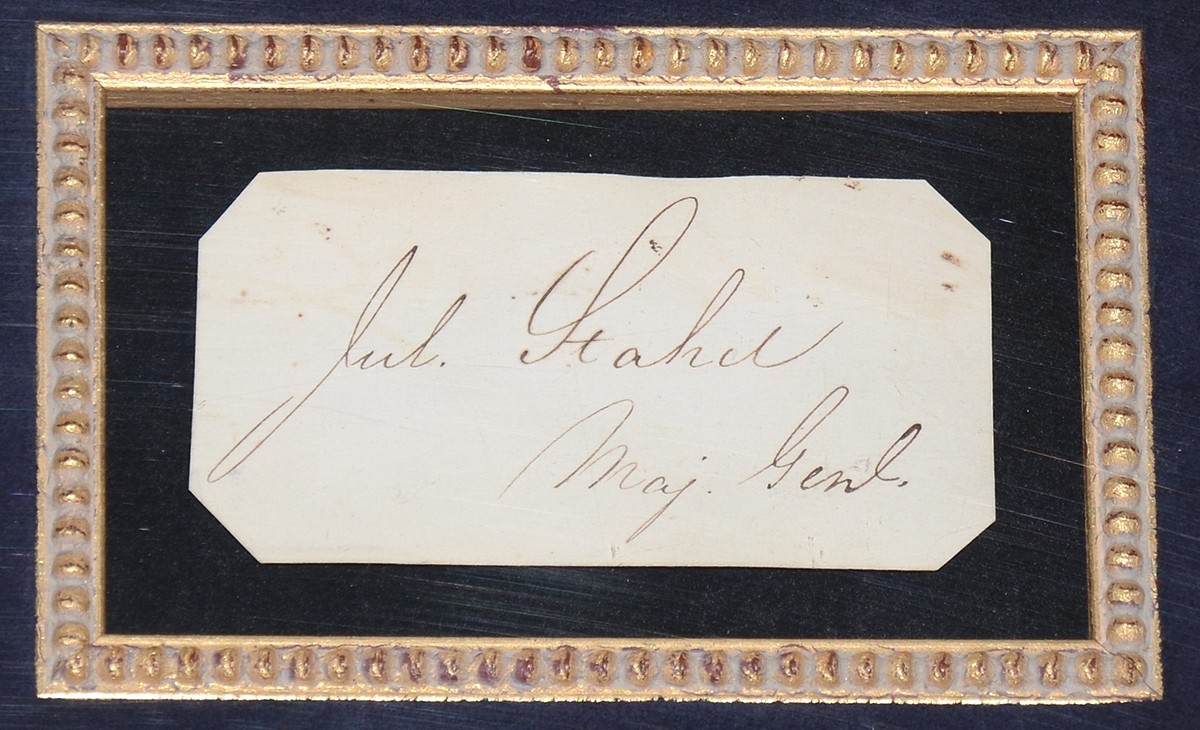 Jul. Stahel
Maj. Genl.